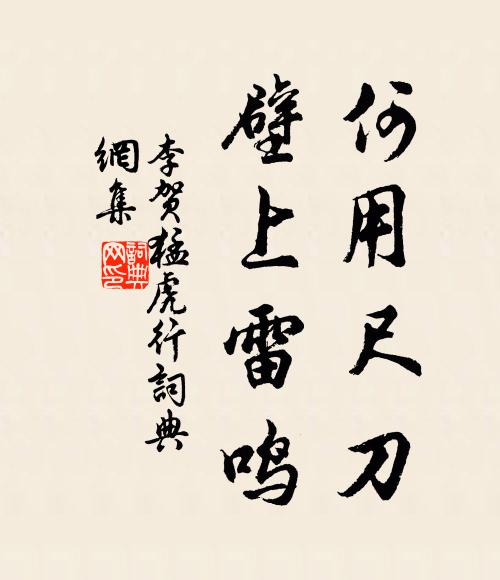 何用尺刀
壁上雷鸣
李贺猛虎行词典
網集
詞典
网印